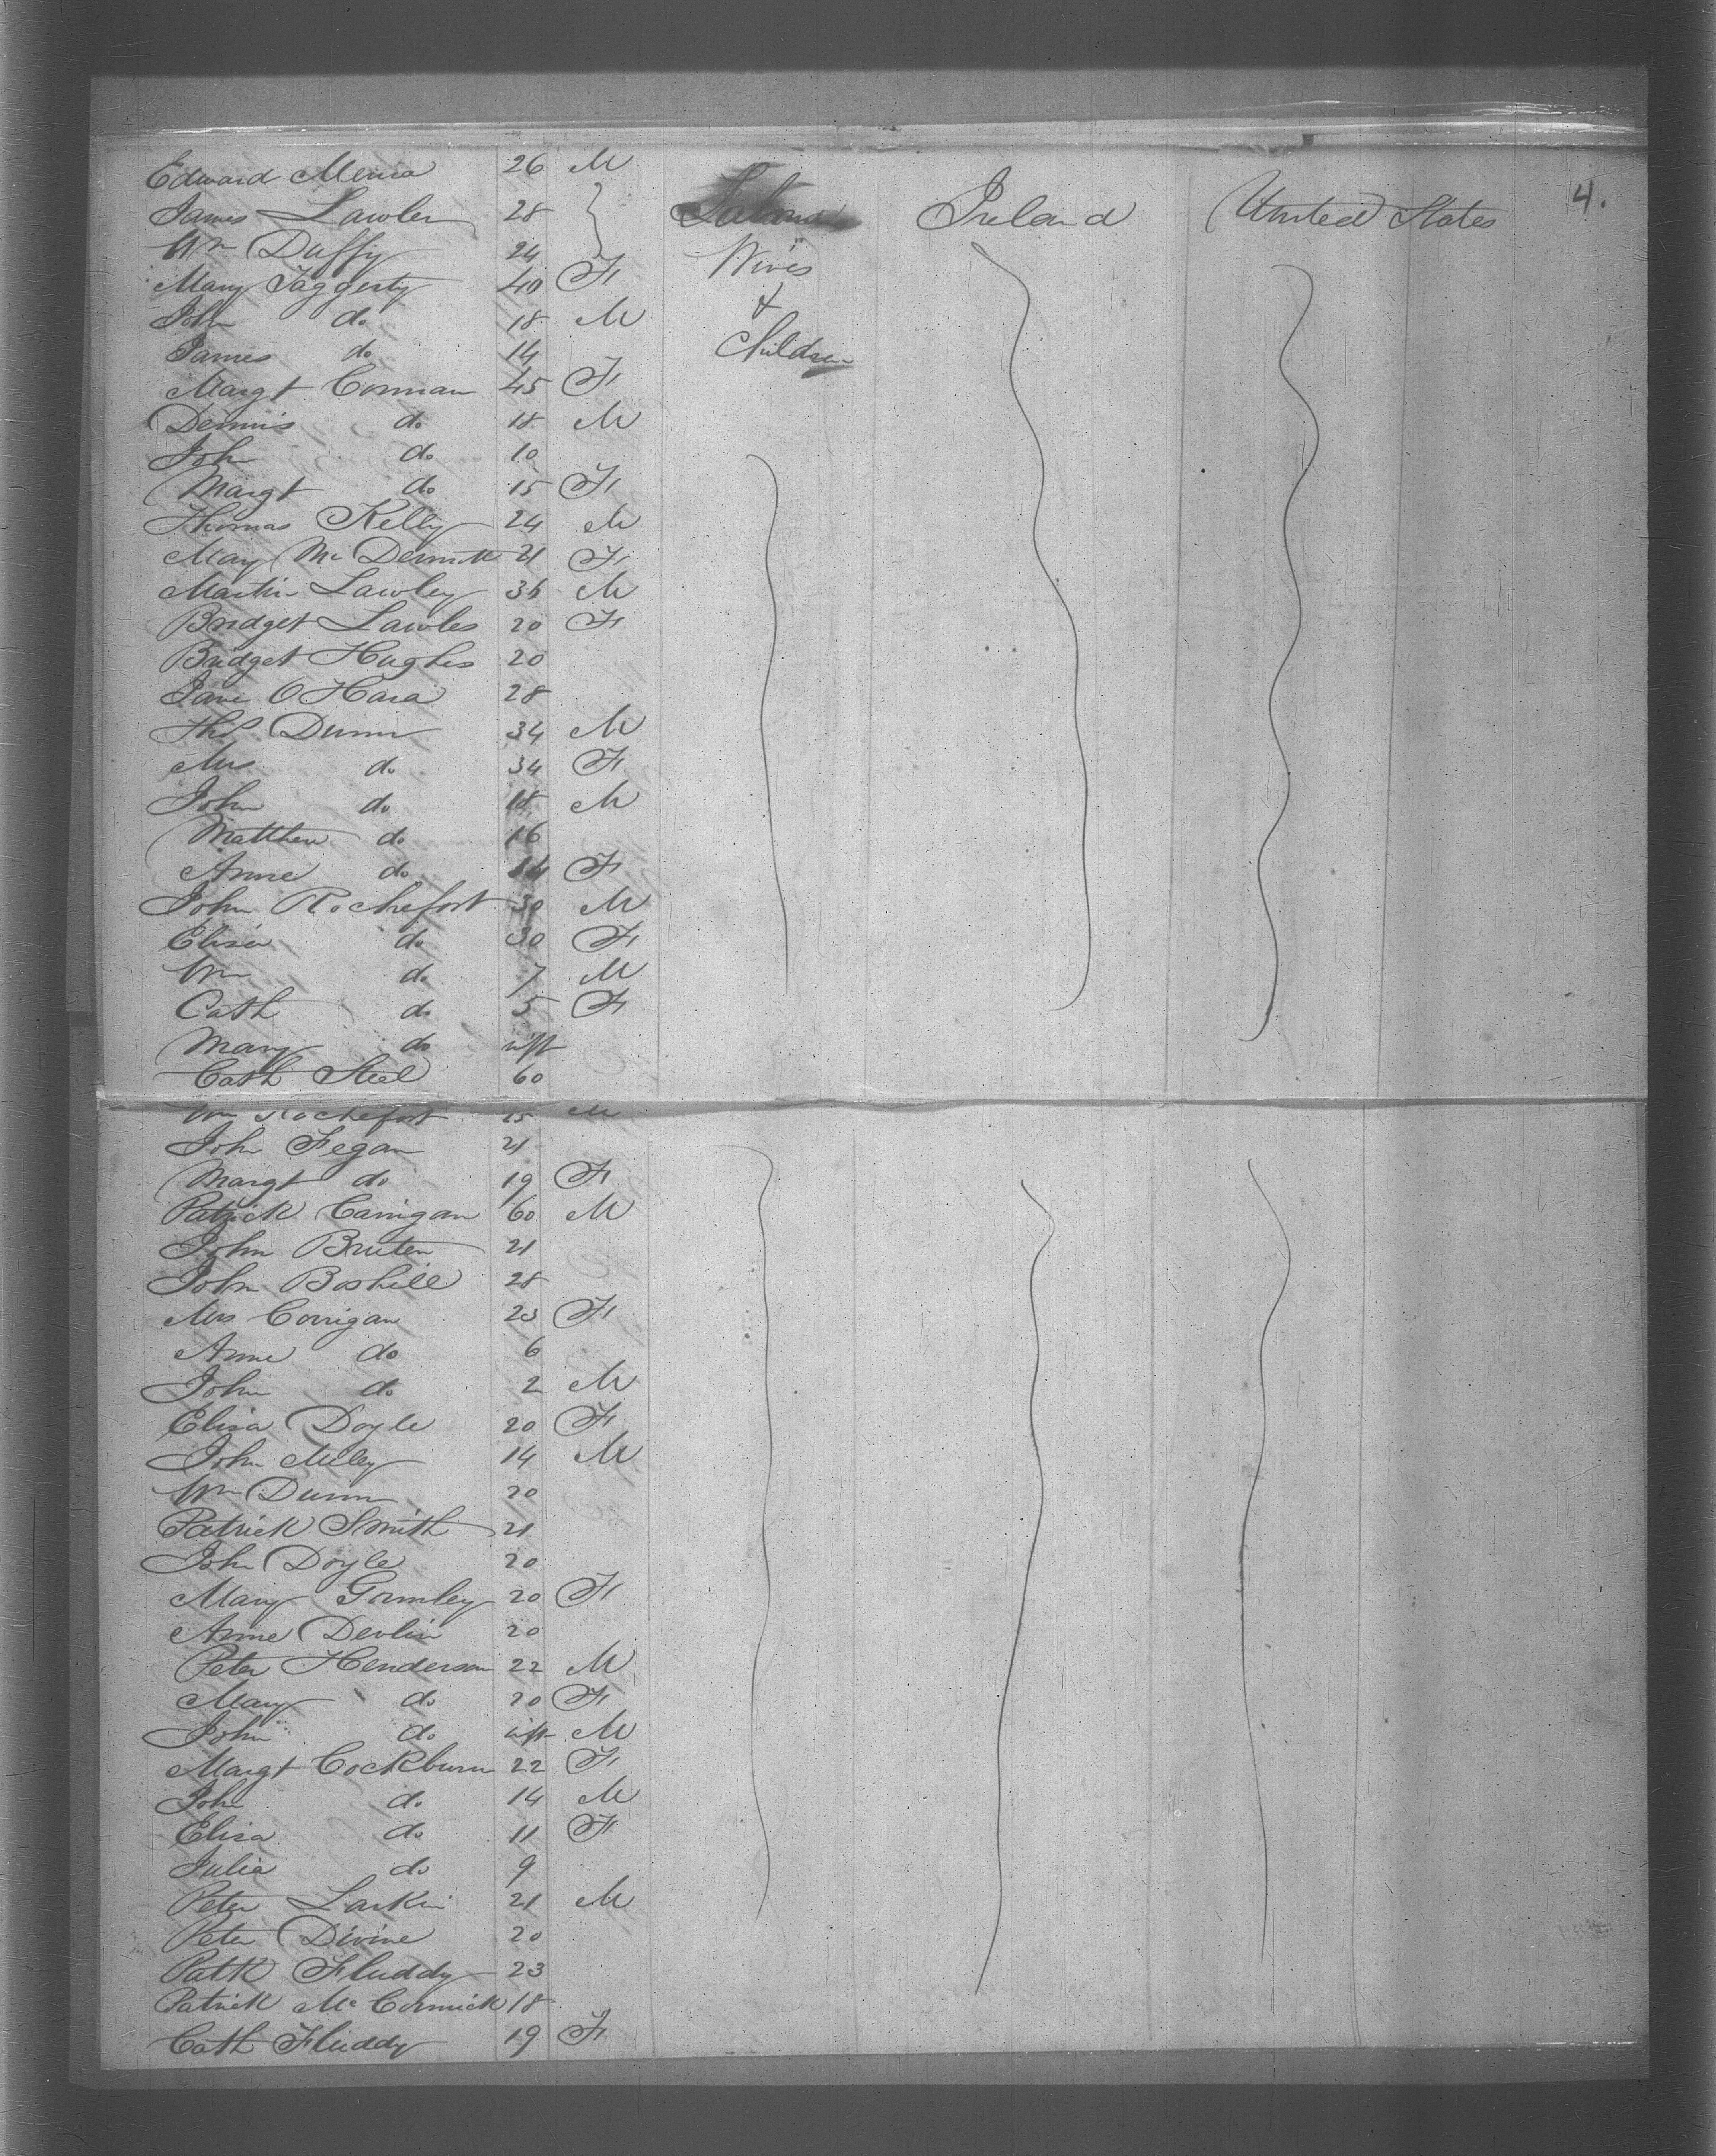 4.
Edward Menia 26 M
James Lawler 28 Ireland United States
Wm Duffy 24 Wives
Mary Taggerty 40 F &
John do 18 M
James do 14 Children
Margt Connan 45 F
Dennis do 18 M
John do 10
Margt do 15 F
Thomas Kelly 24 M
Mary McDermott 21 F
Martin Lawley 36 M
Bridget Lawles 20 F
Bridget Hughes 20
Jane O Hara 28
Ths. Dunn 34 M
Mrs do 34 F
John do 18 M
Matthew do 16
Anne do 14 F
John Rochefort 30 M
Elisa do 30 F
Wm do 7 M
Cath do 5 F
Mary do inft
Cath Steel 60
Wm Rochefort 25 M
John Fegan 21
Margt do 19 F
Patrick Carrigan 60 M
John Bruten 21
John Boshell 28
Mrs Corrigan 23 F
Anne do 6
John do 2 M
Elisa Doyle 20 F
John Miley 14 M
Wm Dunn 20
Patrick Smith 21
John Doyle 20
Mary Gormley 20 F
Anne Devlin 20
Peter Henderson 22 M
Mary do 20 F
John do inft M
Margt Cockburn 22 F
John do 14 M
Elisa do 11 F
Julia do 9
Peter Larkin 21 M
Peter Divine 20
Patk Fluddy 23
Patrick McCormick 18
Cath Fluddy 19 F